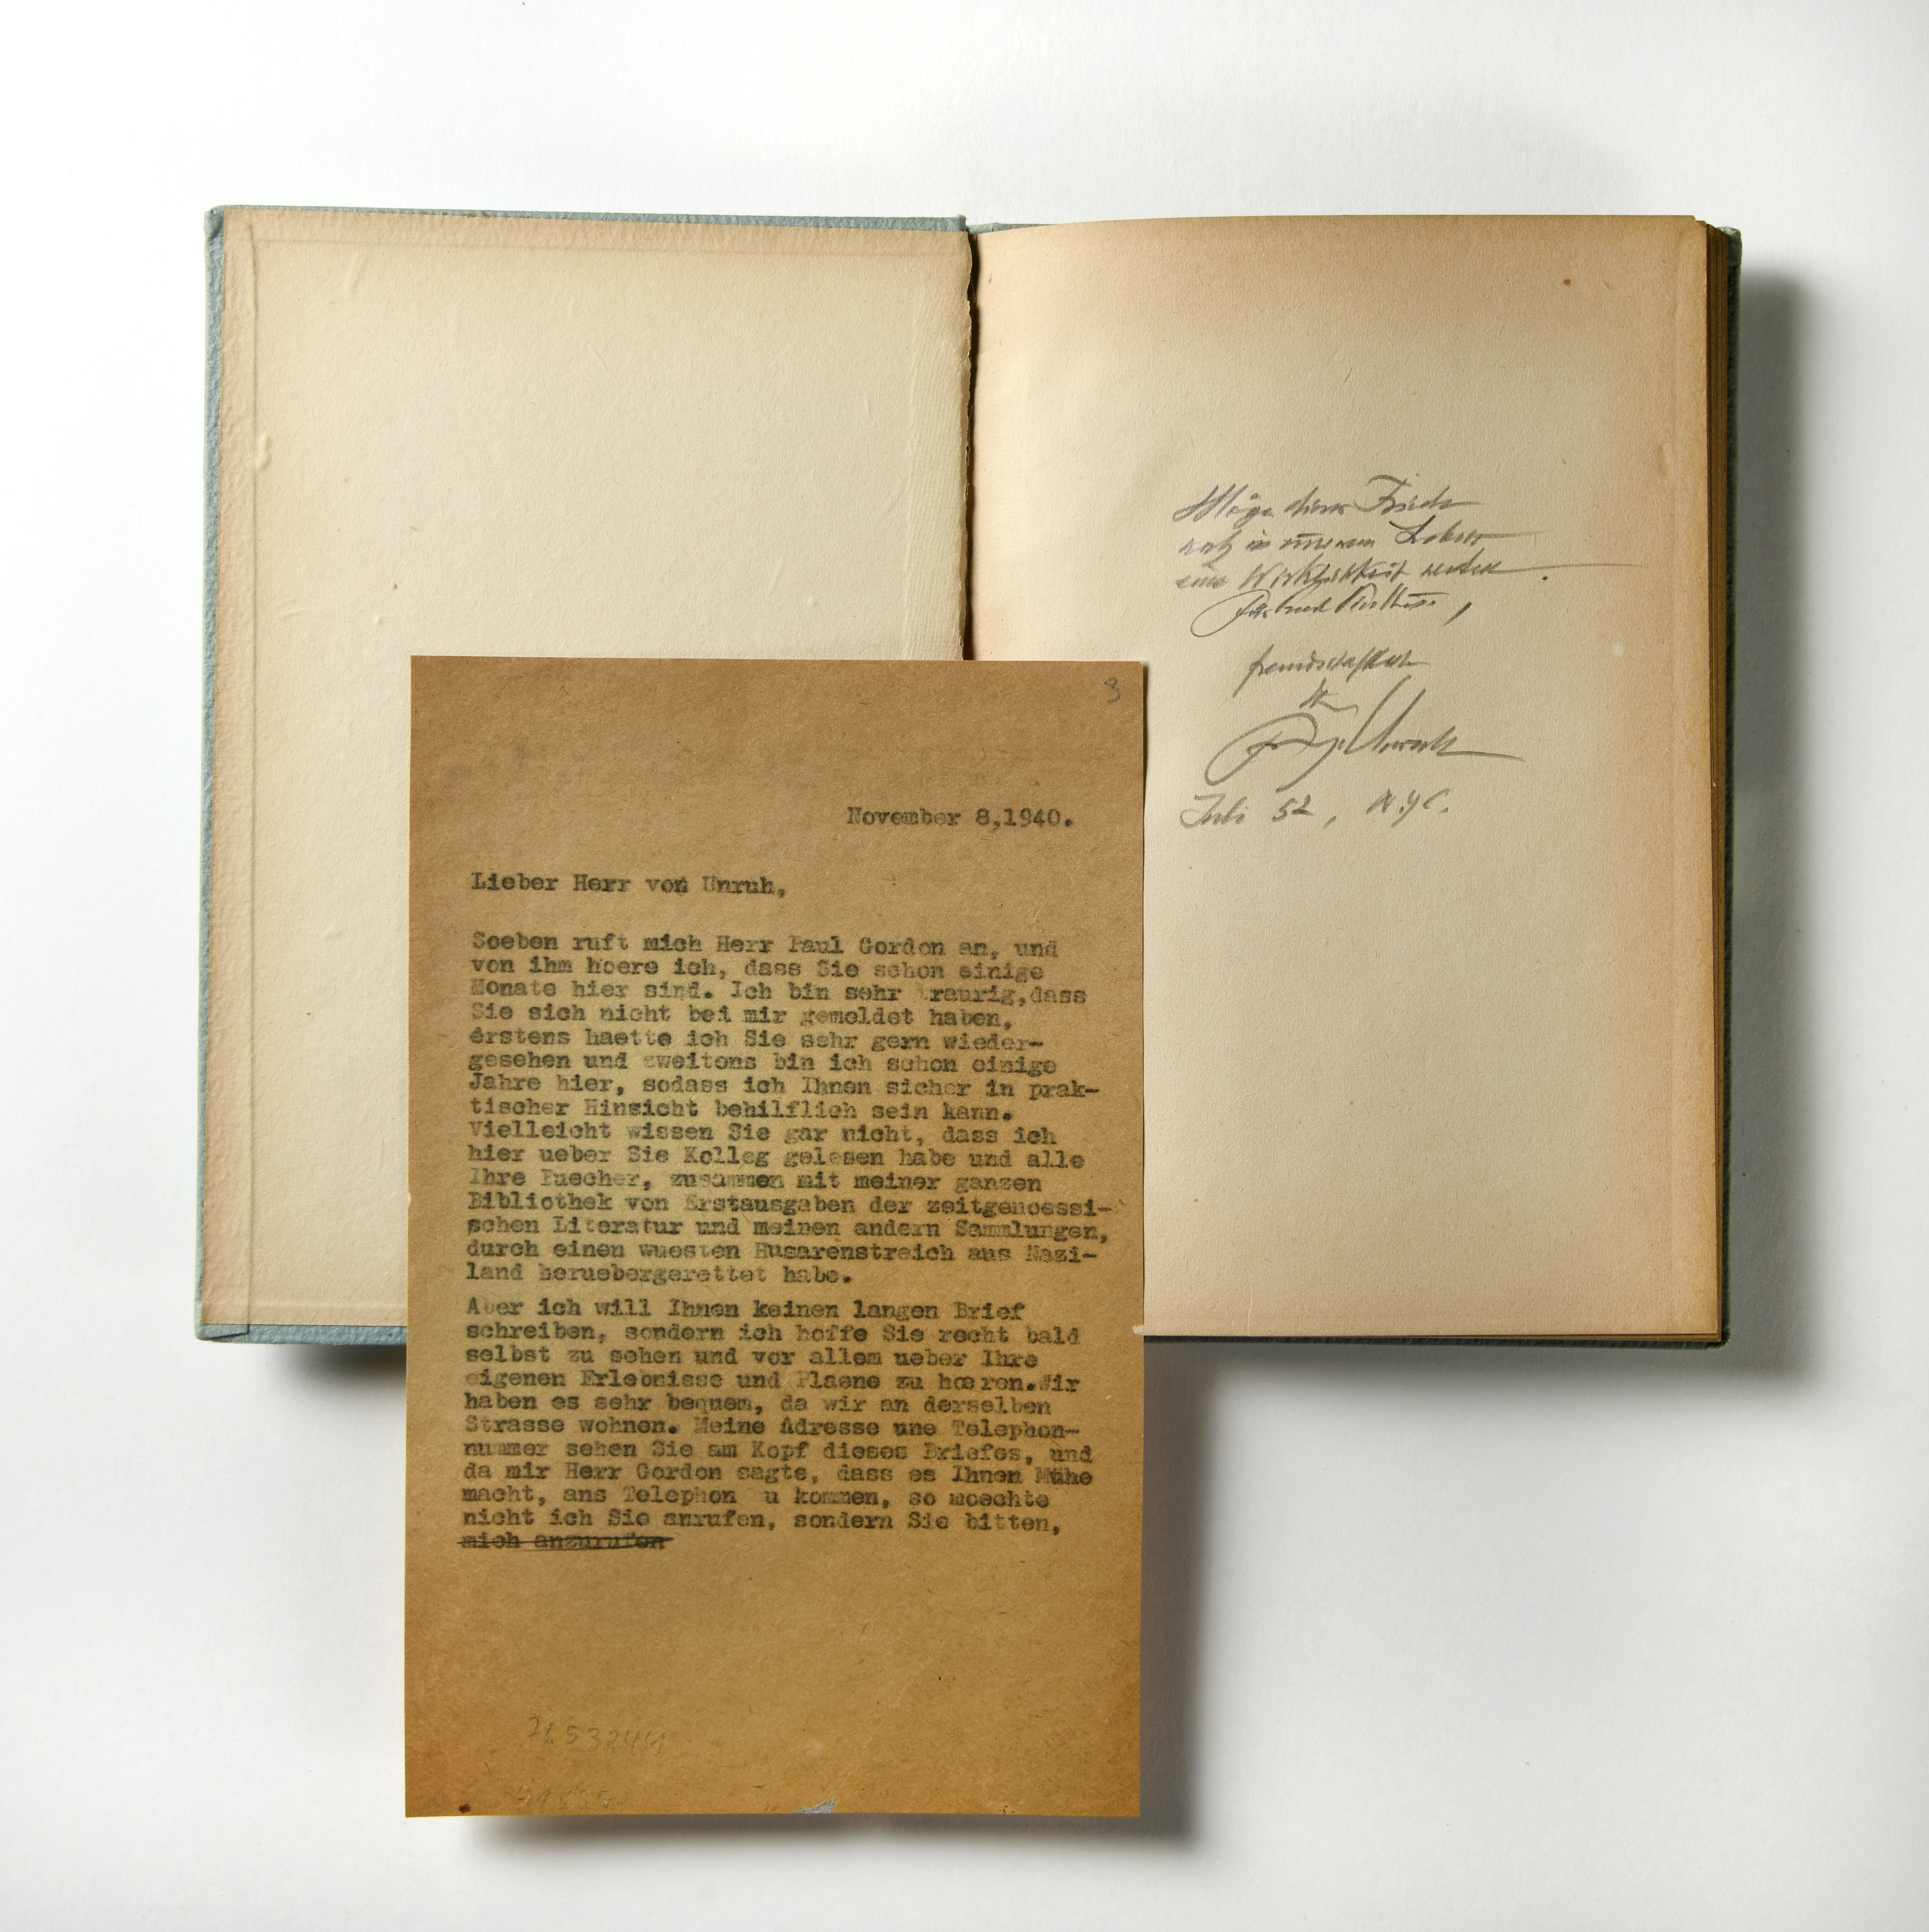 Möge dieser Friede
noch in unserem Leben
eine Wirklichkeit werden.
freundschaftlich
Ihr
Fritz v. Unruh
Juli 52, N.Y.C.
3
November 8,1940.
Lieber Herr von Unruh,
Soeben ruft mich Herr Paul Gordon an, und
von ihm hoere ich, dass Sie schon einige
Monate hier sind. Ich bin sehr traurig,dass
Sie sich nicht bei mir gemeldet haben,
erstens haette ich Sie sehr gern wieder-
gesehen und zweitens bin ich schon einige
Jahre hier, sodass ich Ihnen sicher in prak-
tischer Hinsicht behilflich sein kann.
Vielleicht wissen Sie gar nicht, dass ich
hier ueber Sie Kolleg gelesen habe und alle
Ihre Buecher, zusammen mit meiner ganzen
Bibliothek von Erstausgaben der zeitgenoessi-
schen Literatur und meinen andern Sammlungen,
durch einen wuesten Husarenstreich aus Nazi-
land heruebergerettet habe.
Aber ich will Ihnen keinen langen Brief
schreiben, sondern ich hoffe Sie recht bald
selbst zu sehen und vor allem ueber Ihre
eigenen Erlebnisse und Plaene zu hoeren.Wir
haben es sehr bequem, da wir an derselben
Strasse wohnen. Meine Adresse une Telephon-
nummer sehen Sie am Kopf dieses Briefes, und
da mir Herr Gordon sagte, dass es Ihnen Mühe
macht, ans Telephon u kommen, so moechte
nicht ich Sie anrufen, sondern Sie bitten,
mich anzurufen